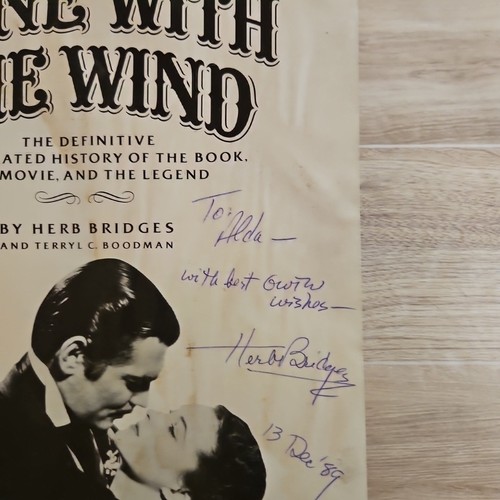 NE WITH
E WIND
THE DEFINITIVE
ATED HISTORY OF THE BOOK,
MOVIE, AND THE LEGEND
BY HERB BRIDGES
AND TERRYL C. BOODMAN
To:
Alda —
with best GWTW
wishes —
Herb Bridges
13 Dec '89